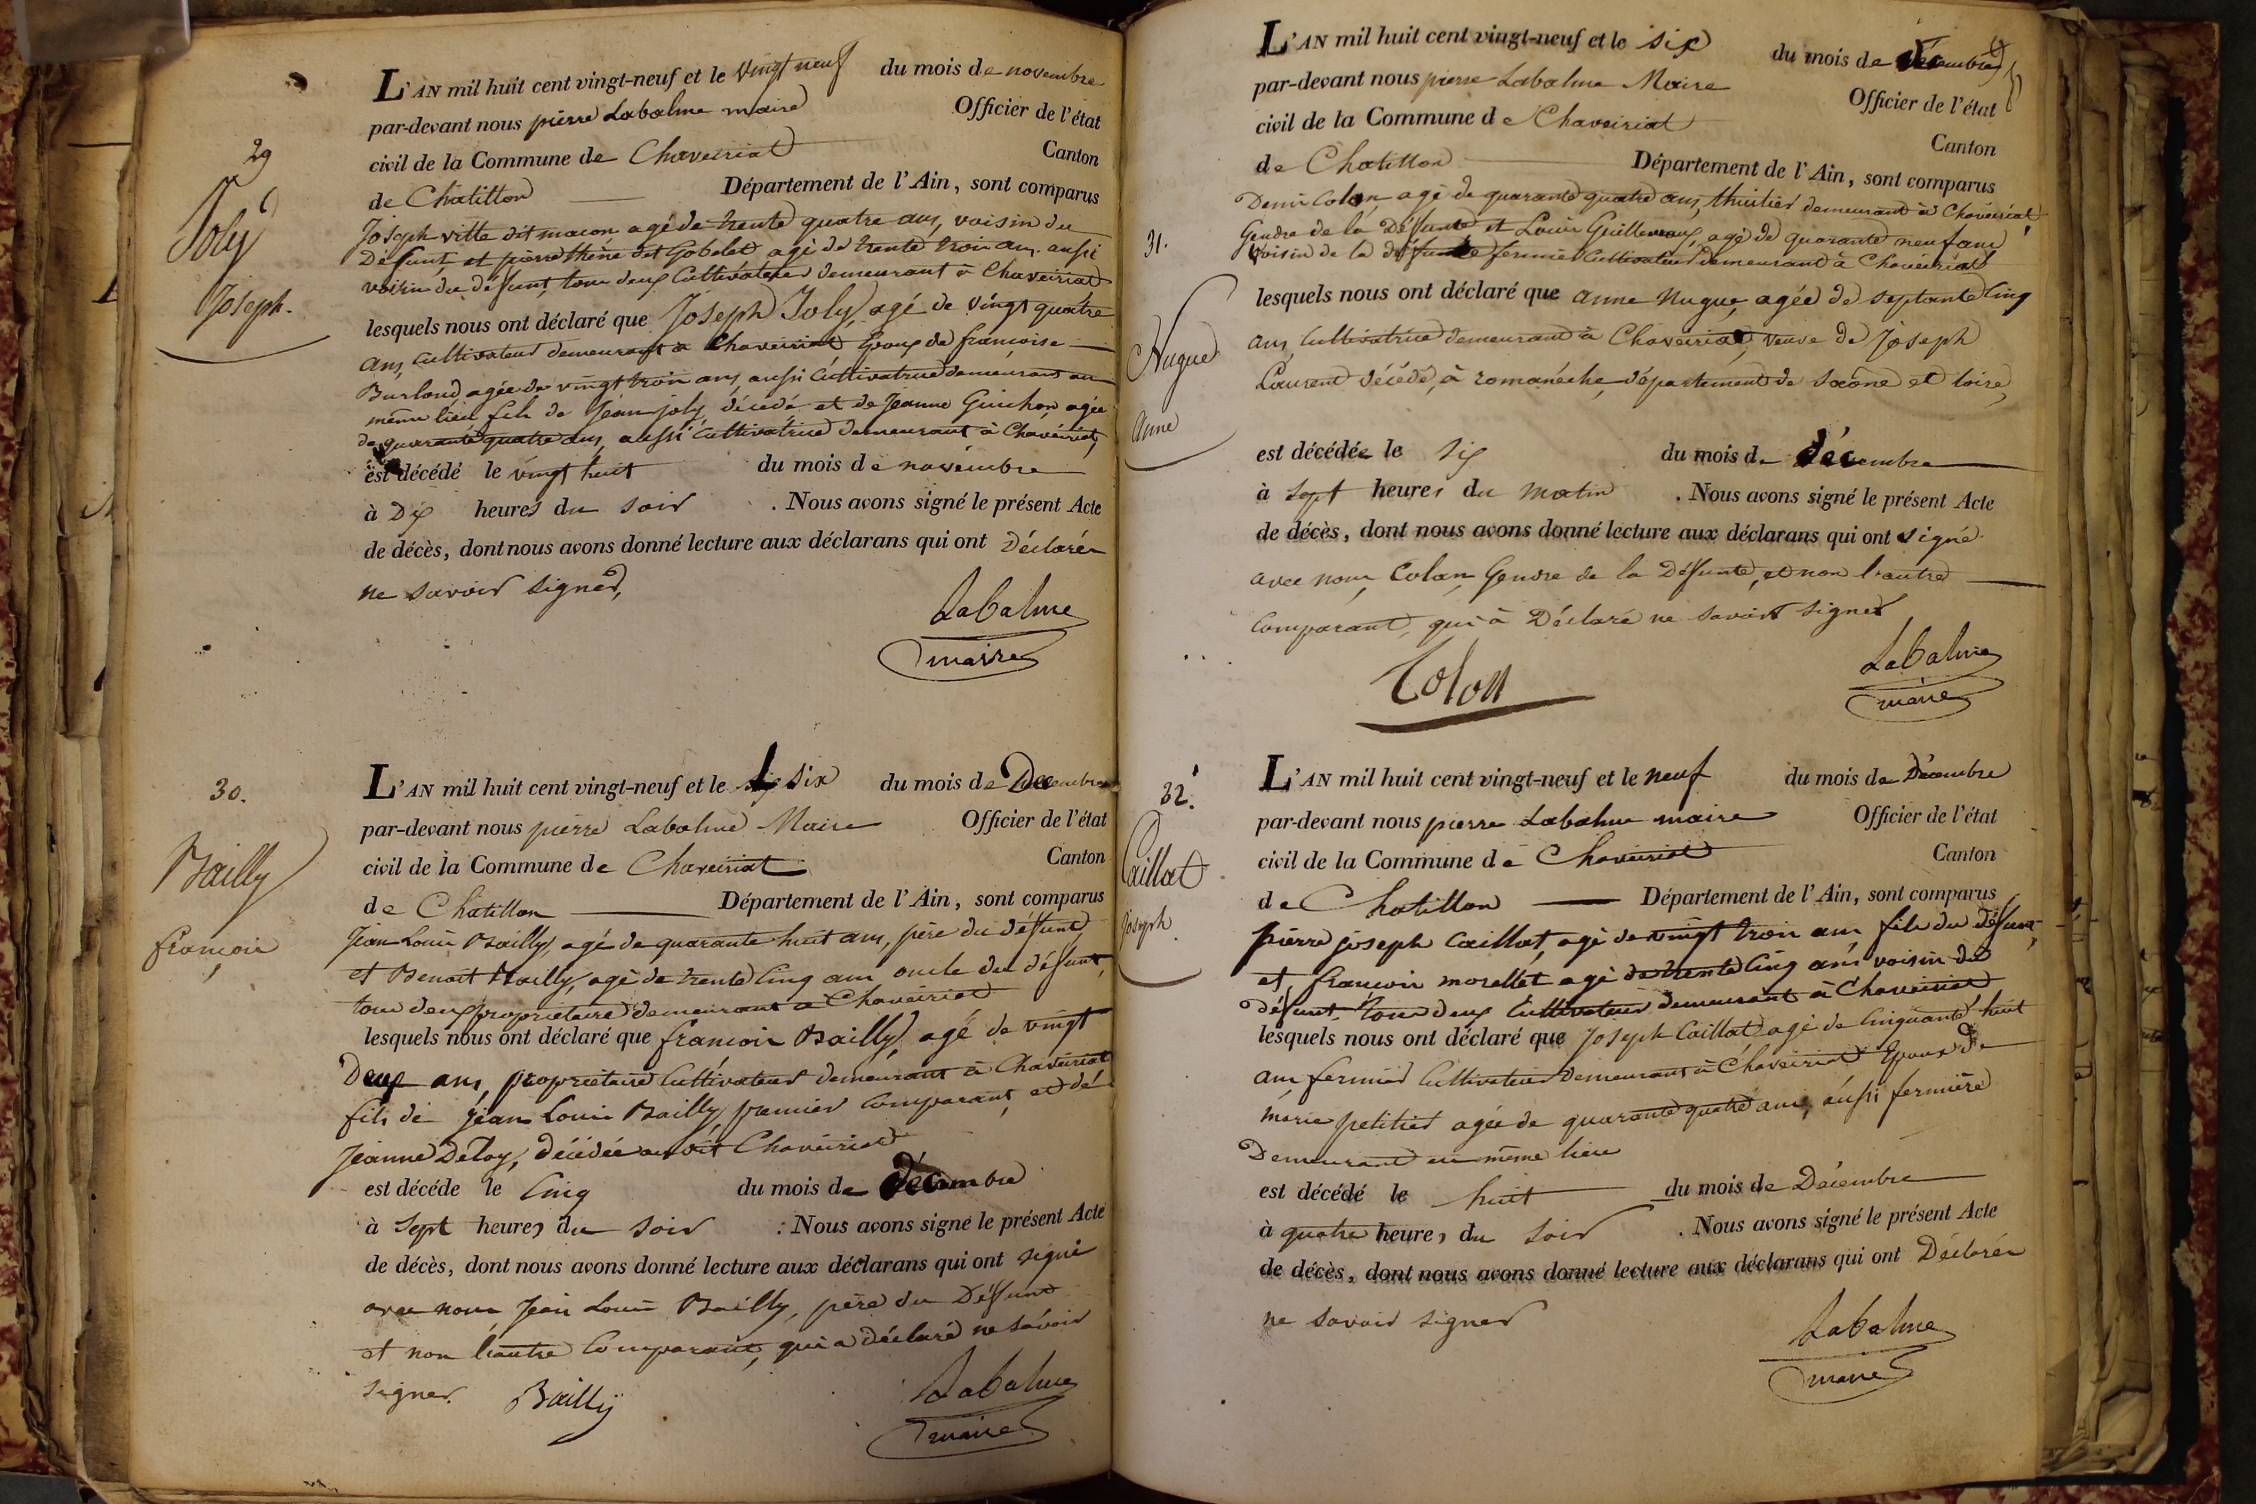 29
Joly
Joseph.
L'AN mil huit cent vingt-neuf et le vingt neuf du mois de novembre
par-devant nous pierre Labalme maire Officier de l'état
civil de la Commune de Chaveiriat Canton
de Châtillon Département de l'Ain, sont comparus
Joseph vitte dit macon agé de trente quatre ans, voisin du
Défunt, et pierre théne dit Gobelet agé de trente trois ans aussi
voisin du défunt, tous deux Cultivateurs demeurant à Chaveiriat
lesquels nous ont déclaré que Joseph Joly, agé de vingt quatre
ans, Cultivateur demeurant à Chaveiriat Epoux de francoise
Burland, agée de vingt trois ans, aussi Cultivatrice demeurant au
même lieu fils de Jean joly, décédé et de Jeanne Guichon agée
de quarante quatre ans, aussi cultivatrice demeurant à Chaveiriat,
est décédé le vingt huit du mois de novembre
à Dix heures du soir . Nous avons signé le présent Acte
de décès, dont nous avons donné lecture aux déclarans qui ont Déclarér
ne savoir signer,
Labalme
maire
30.
Bailly
françois
L'AN mil huit cent vingt-neuf et le six du mois de Decembre
par-devant nous pierre Labalme Maire Officier de l'état
civil de la Commune de Chaveiriat Canton
de Châtillon Département de l'Ain, sont comparus
Jean Louis Bailly, agé de quarante huit ans, père du défunt
et Benoit Bailly, agé de trente Cinq ans oncle du défunt,
tous deux propriétaire demeurant à Chaveiriat
lesquels nous ont déclaré que francois Bailly, agé de vingt
Deux ans, propriétaire Cultivateur demeurant à Chaveiriat
fils de jean Louis Bailly, premier Comparant, et de
Jeanne Deloy, décédée au dit Chaveiriat
est décéde le Cinq du mois de décembre
à Sept heures du soir : Nous avons signé le présent Acte
de décès, dont nous avons donné lecture aux déclarans qui ont signé
avec nous Jean Louis Bailly, père du Défunt
et non l'autre Comparant, qui a déclaré ne savoir
signer. Bailly
Labalme
maire
31.
Nugue
Anne
L'AN mil huit cent vingt-neuf et le six du mois de décembre
par-devant nous pierre Labalme Maire Officier de l'état
civil de la Commune de Chaveiriat Canton
de Chatillon Département de l'Ain, sont comparus
Denis Colon, agé de quarante quatre ans, thuilier demeurant à Chaveiriat,
Gendre de la Défunte et Louis Guillermaux, agé de quarante neuf ans
voisin de la défunte fermier Cultivateur demeurant à Chaveiriat
lesquels nous ont déclaré que anne Nugue, agée de septante Cinq
ans, Cultivatrice demeurant à Chaveiriat, veuve de Joseph
Laurent décédé, à romanéche, département de saône et loire,
est décédée le six du mois de décembre
à sept heures du matin . Nous avons signé le présent Acte
de décès, dont nous avons donné lecture aux déclarans qui ont signé
avec nous, Colon, Gendre de la Défunte, et non l'autre
Comparant, qui à Déclaré ne savoir signer
Labalme
maire
Colon
32.
Caillat
Joseph
L'AN mil huit cent vingt-neuf et le neuf du mois de Décembre
par-devant nous pierre Labalme maire Officier de l'état
civil de la Commune de Chaveiriat Canton
de Chatillon Département de l'Ain, sont comparus
pierre joseph Caillat, agé de vingt trois ans fils du défunt,
et, francois morellet agé de trente Cinq ans voisin du
défunt tous deux Cultivateurs demeurant à Chaveiriat
lesquels nous ont déclaré que Joseph Caillat agé de Cinquante huit
ans fermier Cultivateur demeurant à Chaveiriat Epoux de
marie petitier agée de quarante quatre ans, aussi fermière
Demeurant au même lieu
est décédé le huit du mois de Décembre
à quatre heures du soir . Nous avons signé le présent Acte
de décès, dont nous avons donné lecture aux déclarans qui ont Déclarér
ne savoir signer
Labalme
maire